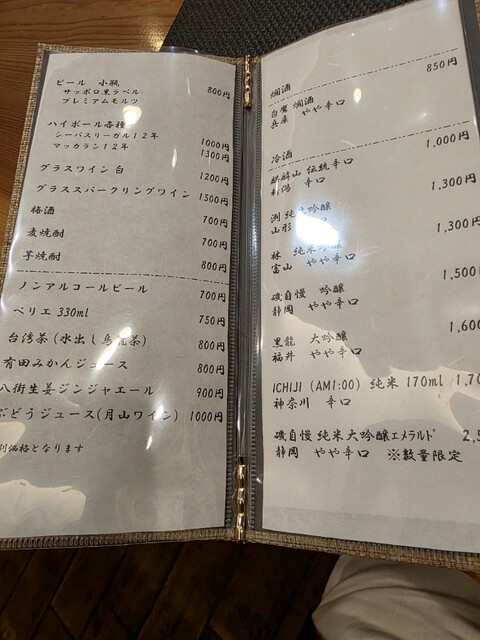 ビール 小瓶 800円
サッポロ黒ラベル
プレミアムモルツ
ハイボール各種
シーバスリーガル12年 1000円
マッカラン12年 1300円
グラスワイン 白 1200円
グラススパークリングワイン 1500円
梅酒 700円
麦焼酎 700円
芋焼酎 800円
ノンアルコールビール 700円
ペリエ 330ml 750円
台湾茶(水出し烏龍茶) 800円
有田みかんジュース 800円
八街生姜ジンジャエール 900円
ぶどうジュース(月山ワイン) 1000円
別価格となります
燗酒 850円
白鷹 燗酒
兵庫 やや辛口
冷酒
麒麟山 伝統辛口 1,000円
新潟 辛口
純米吟醸 1,300円
山形
林 純米吟醸 1,300円
富山 やや辛口
磯自慢 吟醸 1,500
静岡 やや辛口
黒龍 大吟醸 1,600
福井 やや辛口
ICHIJI (AM1:00) 純米 170ml 1,70
神奈川 辛口
磯自慢 純米大吟醸エメラルド 2,5
静岡 やや辛口 ※数量限定